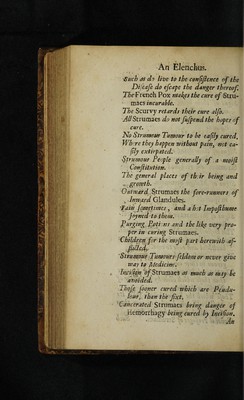 An Elenchus.
Such as do live to the consistence of the
Disease do escape the danger thereof.
The French Pox makes the cure of Stru-
maes incurable.
The Scurvy retards their cure also.
All Strumaes do not suspend the hopes of
cure.
No Strumous Tumour to be easily cured,
Where they happen without pain, not ea-
sily extirpated.
Strumous People generally of a moist
Constitution.
The general places of their being and
growth.
Outward Strumaes the fore-runners of
Inward Glandules.
Pain sometimes, and a hot Imposthume
joyned to them.
Purging Potions and the like very pro-
per in curing Strumaes.
Children for the most part herewith af-
flicted.
Strumous Tumours seldom or never give
way to Medicine.
Incision of Strumaes as much as may be
avoided.
Those sooner cured which are Pendu-
lous, than the fixt.
Cancerated Strumaes bring danger of
Hemorrhagy being cured by Incision.
An